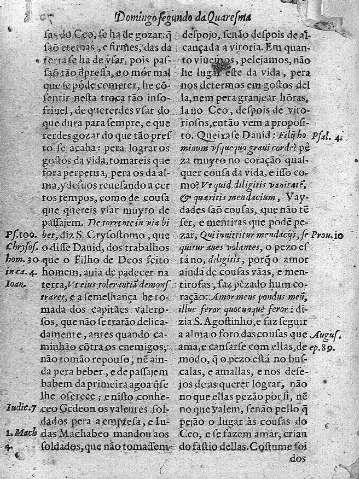 Domingo segundo da Quaresma
sas do Ceo, se ha de gozar: q̃
são eternas, e firmes, das da
terra se ha de vsar, pois pas-
são tão depressa, e o môr mal
que se pòde cometer, he cõ-
sentir nesta troca tão insof-
friuel, de quererdes vsar do
que dura para sempre, e que-
rerdes gozar do que tão pres-
to se acaba: pera lograr os
gostos da vida, tomareis que
fora perpetua, pera os da al-
ma, y desùos reuesando a cer
tos tempos, como de cousa
que quereis vsar muyto de
passajem. De torrente in via bi
bet, diz S. Crysostomo, que
o disse Dauid, dos trabalhos
que o Filho de Deos feito
homem, auia de padecer na
terra, Vt eius tolerantiã demons
traret, e a semelhança he to-
mada dos capitães valero-
sos, que não se tratão delica-
damente, antes quando ca-
minhão cõtra os enemigos,
não tomão repouso, nẽ ain-
da pera beber, e de passajem
babem da primeira agoa q̃ se
lhe oferece; e nisto conhe-
ceo Gedeon os valentes sol-
dados pera a empresa, e Iu-
das Machabeo mandou aos
soldados, que não tomassem
Ps. 109.
Chrysos.
hom. 30
in ca. 4.
Ioan.
Iudic. 7
1. Mach
4.
despojo, senão despois de al-
cançada a vitoria. Em quan-
to viuemos, pelejamos, não
he lugar este da vida, pera
nos determos em gostos del
la, nem pera granjear hõras,
la no Ceo, despois de vito-
riosos, então vem a proposi-
to. Queixase Dauid: Filij ho-
minum vsquequo graui corde? pè
za muyto no coração qual-
quer cousa da vida, e isso co-
mo? Vt quid diligitis vanitatẽ,
& quæritis mendacium, Vay-
dades são cousas, que não tẽ
ser, e mentiras que podẽ pe-
zar, Qui innititur mendacijs, se-
quitur aues volantes, o pezo es-
tà no, diligitis, porq̃ o amor
ainda de cousas vãas, e men-
tirosas, faz pezado hum co-
ração: Amor meus pondus meũ,
illuc feror quocunque feror: di-
zia S. Agostinho, e faz seguir
a alma o foro das cousas que
ama, e cansarse com ellas, de
modo, q̃ o pezo està no bus-
calas, e amallas, e nos dese-
jos de as querer lograr, não
no que ellas pezão por si, nẽ
no que valem, senão pello q̃
pejão o lugar às cousas do
Ceo, e se fazem amar, crian
do fastio dellas. Costume foi
dos
Psal. 4.
Prou. 10
Augus.
ep. 89.